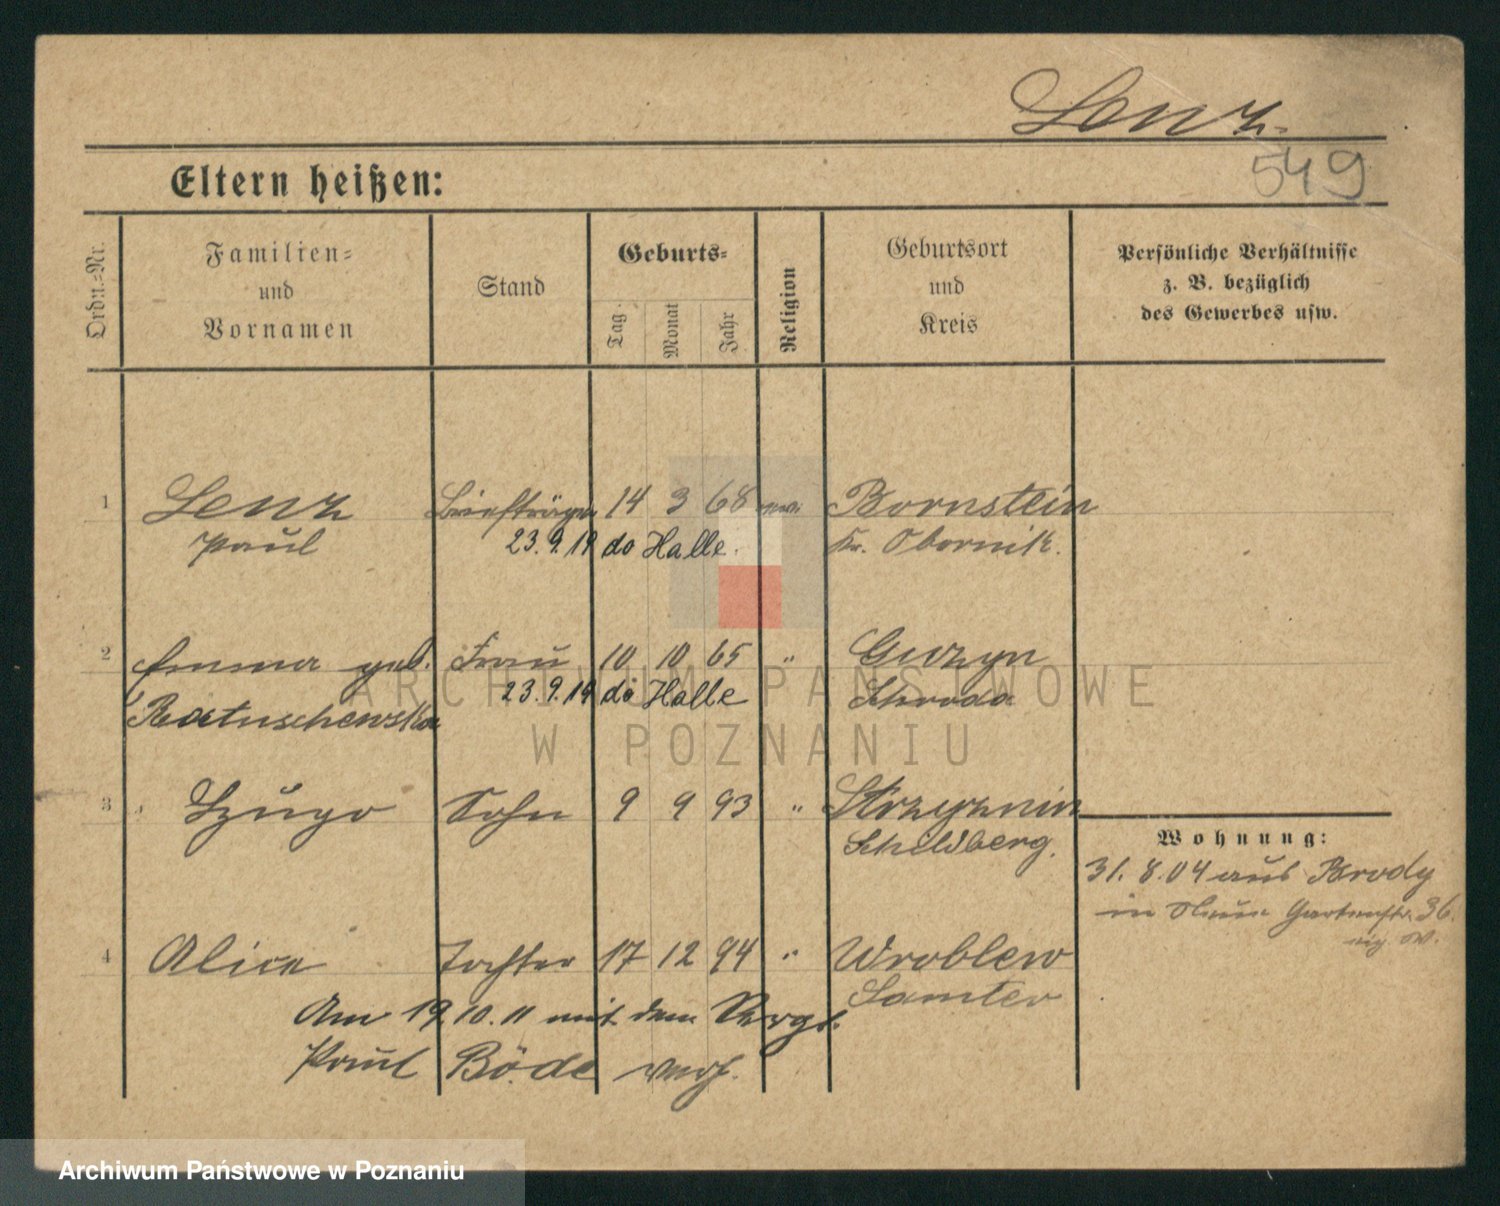 Lenz
549
Eltern heißen:
Ordn.-Nr.
Familien- und Vornamen
Stand
Geburts-
Tag
Monat
Jahr
Religion
Geburtsort und Kreis
Persönliche Verhältnisse z. B. bezüglich des Gewerbes usw.
1 Lenz Briefträger 14 3 68 Bornstein
Paul 23.9.19 do Halle. Kr. Obornik.
2 Emma geb. Frau 10 10 65 " Gwzyn
23.9.19 do Halle Schroda
Ratuschewska
3 Hugo Sohn 9 9 93 "
Schildberg.
Wohnung:
31.8.04 aus Brody
in Gartenstr. 36.
4 Alice Tochter 17 12 94 " Wroblewo
Samter
Am 19.10.11 mit dem
Paul Böde verh.
ARCHIWUM PAŃSTWOWE
W POZNANIU
Archiwum Państwowe w Poznaniu